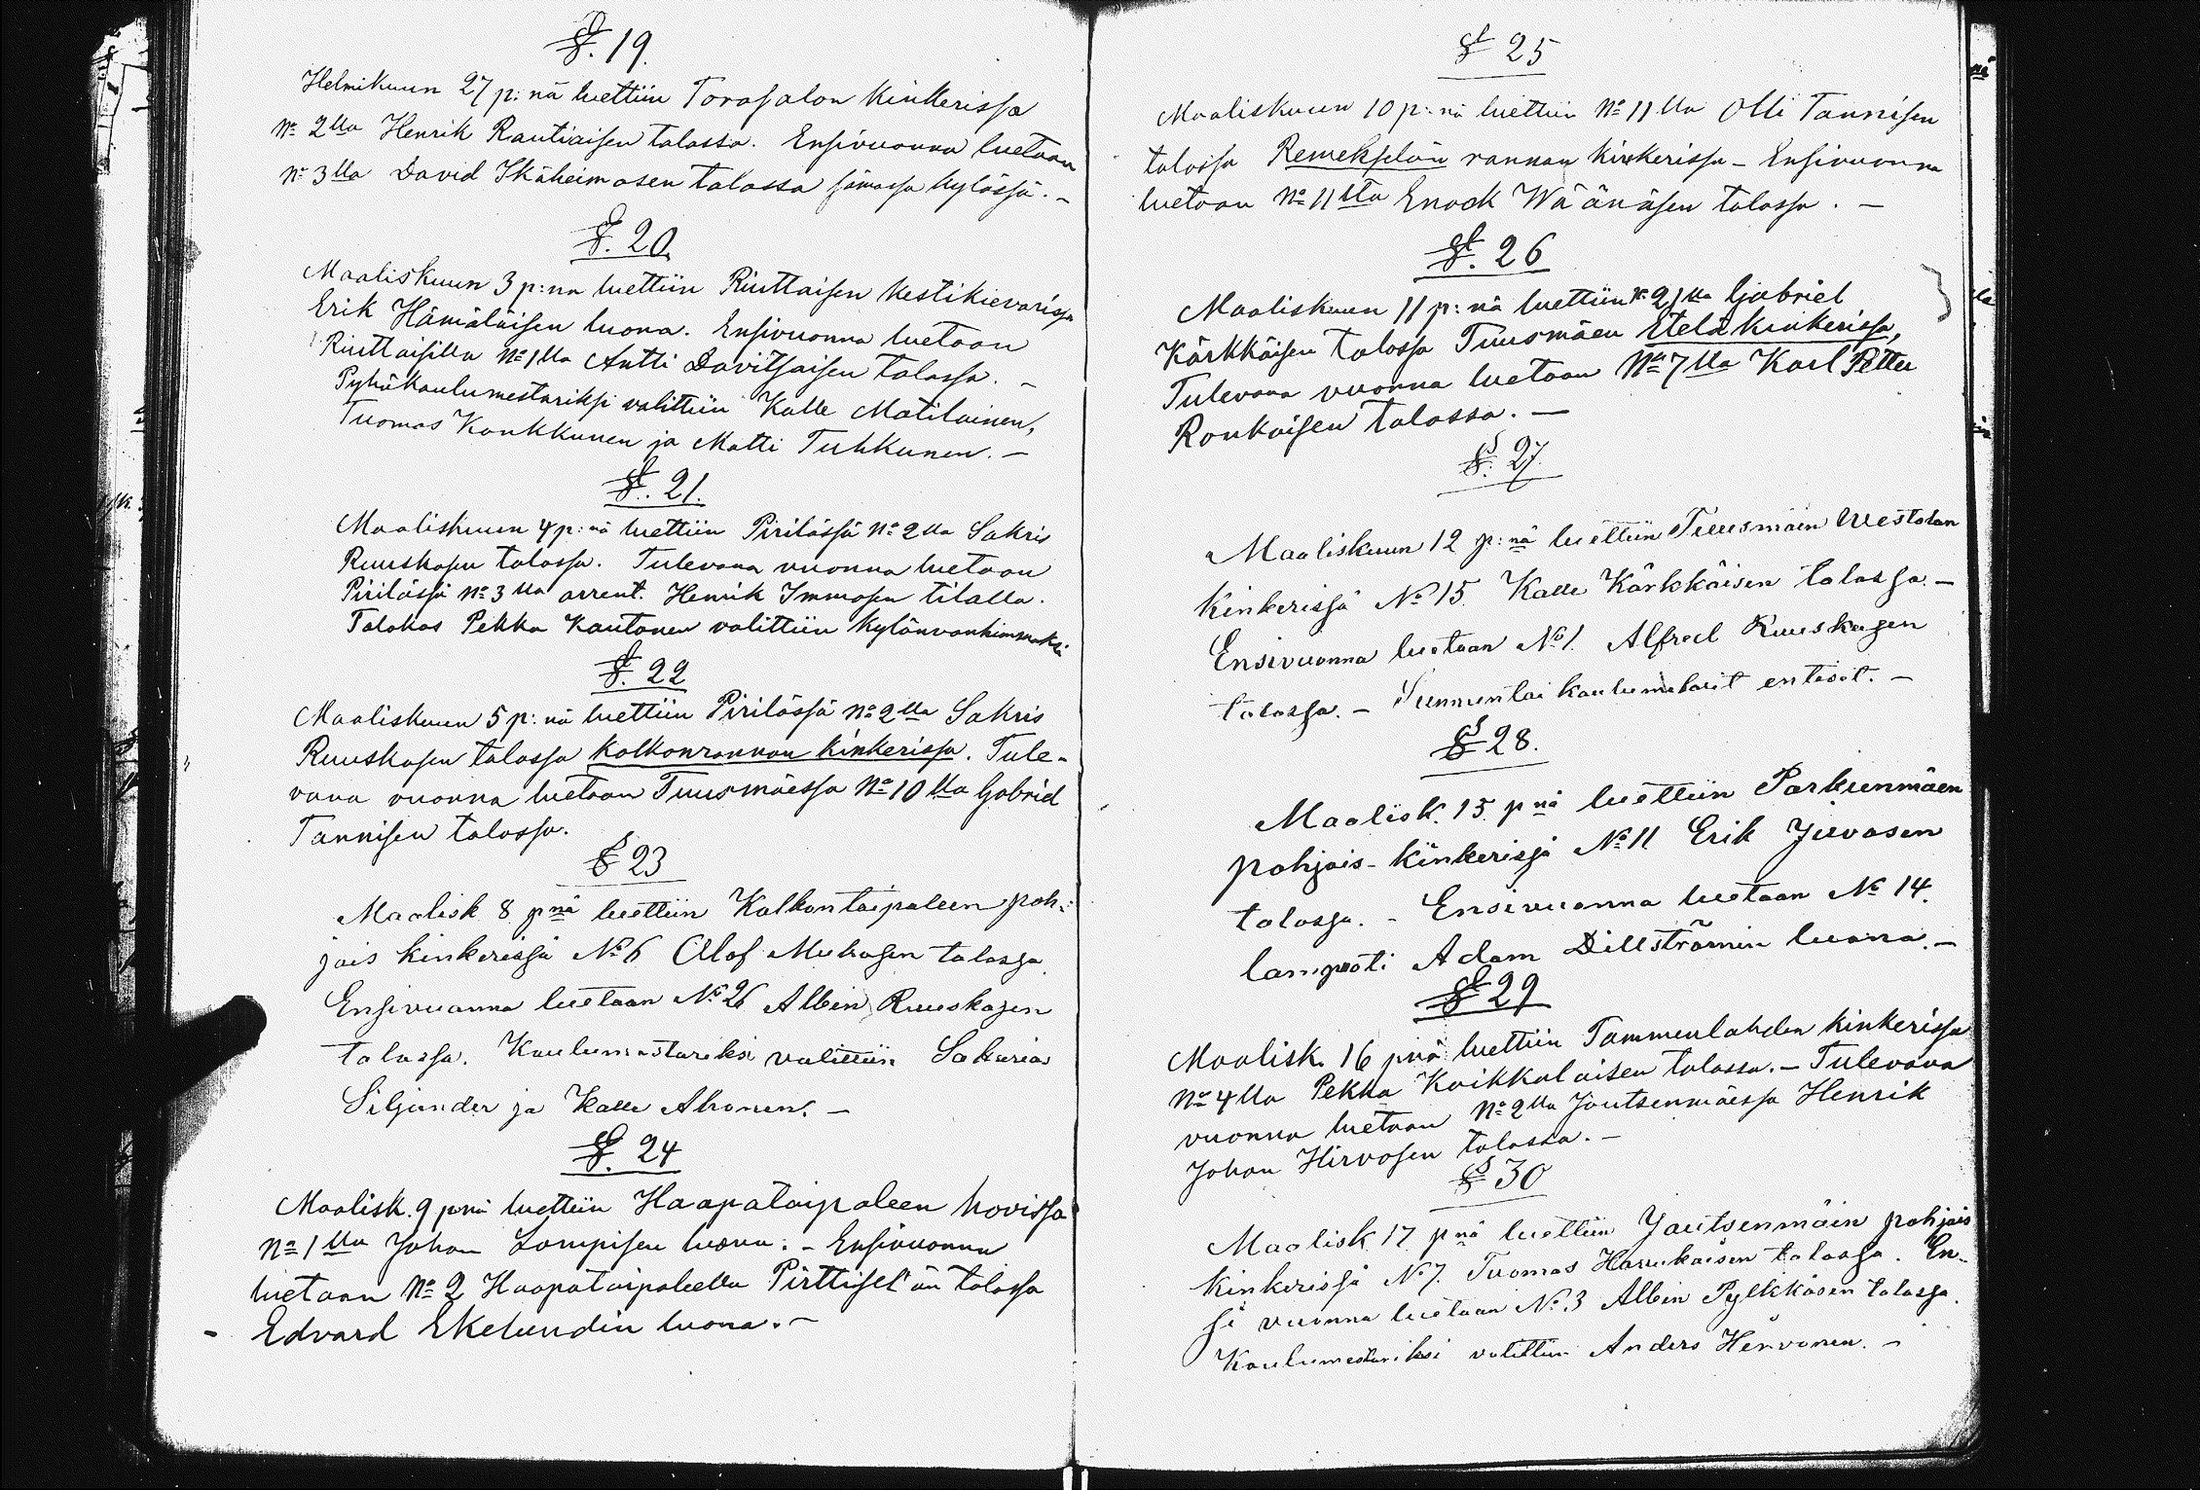 §. 19.
Helmikuun 27 p:nä luettiin Torasalon kinkerissa
No 2lla Henrik Rautiaisen talossa. Ensivuonna luetaan
No 3lla David Ikäheimosen talossa samassa kylässä. –
§. 20.
Maaliskuun 3 p:nä luettiin Riuttaisen kestikievarissa
Erik Hämäläisen luona. Ensivuonna luetaan
Riuttaisilla No 1lla Antti Davitsaisen talossa. –
Pyhäkoulumestariksi valittiin Kalle Matilainen,
Tuomas Kankkunen ja Matti Tuhkunen. –
§. 21.
Maaliskuun 4 p:nä luettiin Pirilässä No 2lla Sakris
Ruuskasen talossa. Tulevana vuonna luetaan
Pirilässä No 3lla arrent. Henrik Immosen tilalla.
Talokas Pekka Kautonen valittiin kylänvanhimmaksi
§. 22
Maaliskuun 5 p:nä luettiin Pirilässä No 2lla Sakris
Ruuskasen talossa Kolkonrannan kinkerissa. Tule-
vana vuonna luetaan Tuusmäessa No 10lla Gabriel
Tannisen talossa.
§ 23
Maalisk 8 pnä luettiin Kolkontaipaleen poh-
jais kinkerissä No 6 Olof Muhosen talossa
Ensivuonna luetaan No 26 Albin Ruuskasen
talossa. Koulumestareksi valittiin Sakarias
Siljander ja Kalle Ahonen. –
§. 24
Maalisk. 9 pnä luettiin Haapataipaleen hovissa
No 1lla Johan Lampisen luona. – Ensivuonna
luetaan No 2 Haapataipaleella Pirttiselän talossa
– Edvard Ekelundin luona. –
§ 25
Maaliskuun 10 p:nä luettiin No 11lla Olli Tannisen
talossa Remekselän rannan kinkerissa – Ensivuonna
luetaan No 11lla Enock Wäänäsen talossa. –
§. 26
Maaliskuun 11 p:nä luettiin No 21lla Gabriel
Kärkkäisen talossa Tuusmäen etelä kinkerissa,
Tulevana vuonna luetaan No 7lla Karl Petter
Ronkaisen talossa. –
§. 27.
Maaliskuun 12 p:nä luettiin Tuusmäen Westolan
kinkerissä No 15. Kalle Kärkkäisen talossa. –
Ensivuonna luetaan No 1. Alfred Ruuskasen
talossa. – Sunnuntai koulumestarit entiset. –
§ 28.
Maalisk. 15. pnä luettiin Parkunmäen
pohjais-kinkerissä No 11 Erik Juvosen
talossa. – Ensivuonna luetaan No 14.
lampuoti Adam Dillströmin luona. –
§ 29
Maalisk. 16 pnä luettiin Tammenlahden kinkerissa
No 4lla Pekka Koikkalaisen talossa. – Tulevana
vuonna luetaan No 2lla Joutsenmäessa Henrik
Johan Hirvosen talossa. –
§ 30
Maalisk. 17. pnä luettiin Joutsenmäin pohjais
kinkerissä No 7. Tuomas Haukaisen talossa. En-
si vuonna luetaan No. 3 Albin Pylkkäsen talossa.
Koulumestariksi valittiin Anders Hirvonen. –